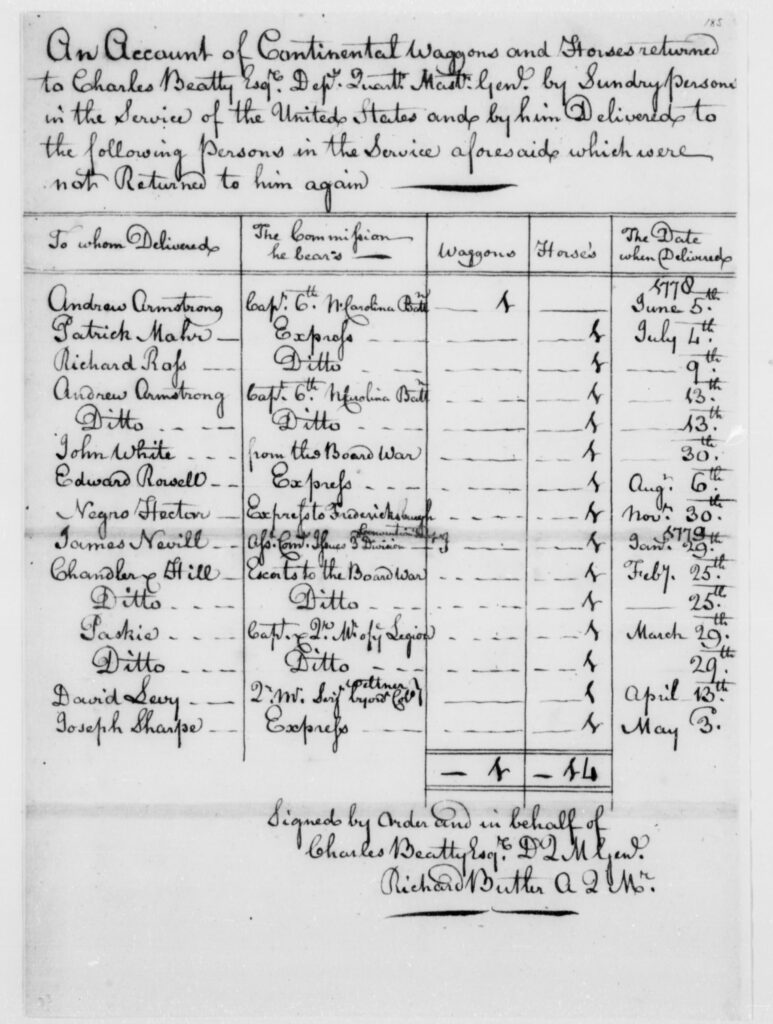 185
An Account of Continental Waggons and Horses returned
to Charles Beatty Esqr. Depy. Quartr. Mastr. Genl. by Sundry persons
in the Service of the United States and by him Delivered to
the following Persons in the Service aforesaid which were
not Returned to him again
To whom Delivered The Commission he bears Waggons Horse's The Date when Delivered
1778
Andrew Armstrong Capt. 6th N Carolina Batt 1 June 5th
Patrick Mahr Express 1 July 4th
Richard Ross Ditto 1 9th
Andrew Armstrong Capt. 6th N Carolina Batt 1 13th
Ditto Ditto 1 13th
John White from the Board War 1 30th
Edward Rowell Express 1 Augt. 6th
Negro Hector Express to Fredericksburgh 1 Novr. 30th
1779
James Nevill Asst. Comy. Issues 3 Division 1 Jany. 29th
Chandler & Hill Escorts to the Board War 1 Feby. 25th
Ditto Ditto 1 25th
Paskie Capt. & Qr. Mr. of Legion 1 March 29th
Ditto Ditto 1 29th
David Levy Qr. Mr. Serjt. 1 April 13th
Joseph Sharpe Express 1 May 3
1 14
Signed by Order and in behalf of
Charles Beatty Esqr. D Q M Genl.
Richard Butler A Q Mr.